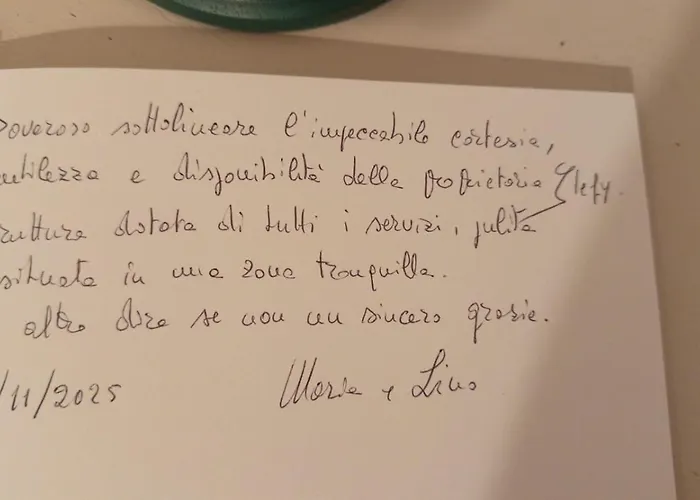 Doveroso sottolineare l'impeccabile cortesia,
gentilezza e disponibilità della proprietaria Elefy.
struttura dotata di tutti i servizi, pulita
situata in una zona tranquilla.
altro dire se non un sincero grazie.
/11/2025 Maria e Lino